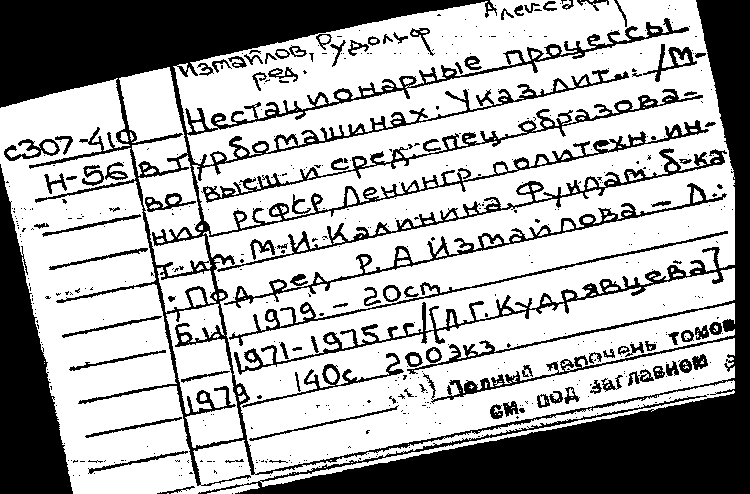 Измайлов, Рудольф Александр
ред.
Нестационарные процессы
с307-410
Н-56 в турбомашинах: Указ. лит... /М-
во высш. и сред. спец. образова-
ния РСФСР, Ленингр. политехн. ин-
т им. М.И. Калинина, Фундам. б-ка
; Под ред. Р. А Измайлова. - Л.:
Б.и., 1979. - 20см.
1971-1975 гг./[Л.Г. Кудрявцева]
1979. 140с. 200экз.
Полный перечень томов
см. под заглавием